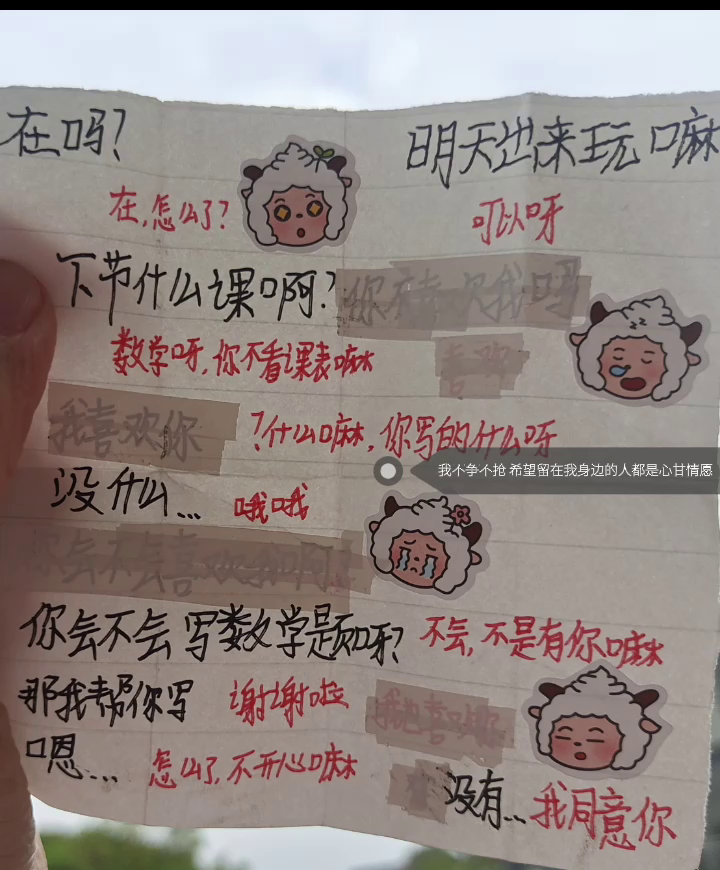 在吗?
在,怎么了?
下节什么课啊?
数学呀,你不看课表嘛
我喜欢你
?什么嘛,你写的什么呀
没什么...
哦哦
你会不会喜欢我啊?
你会不会写数学题呀?
不会,不是有你嘛
那我帮你写
谢谢啦
嗯...
怎么了,不开心嘛
明天出来玩嘛
可以呀
你不喜欢我吗
喜欢
我不争不抢 希望留在我身边的人都是心甘情愿
我也喜欢你
没有...
我同意你